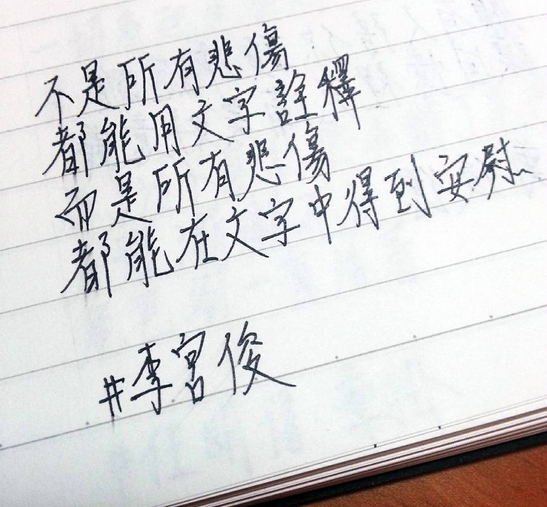 不是所有悲傷
都能用文字詮釋
而是所有悲傷
都能在文字中得到安慰
#李宮俊